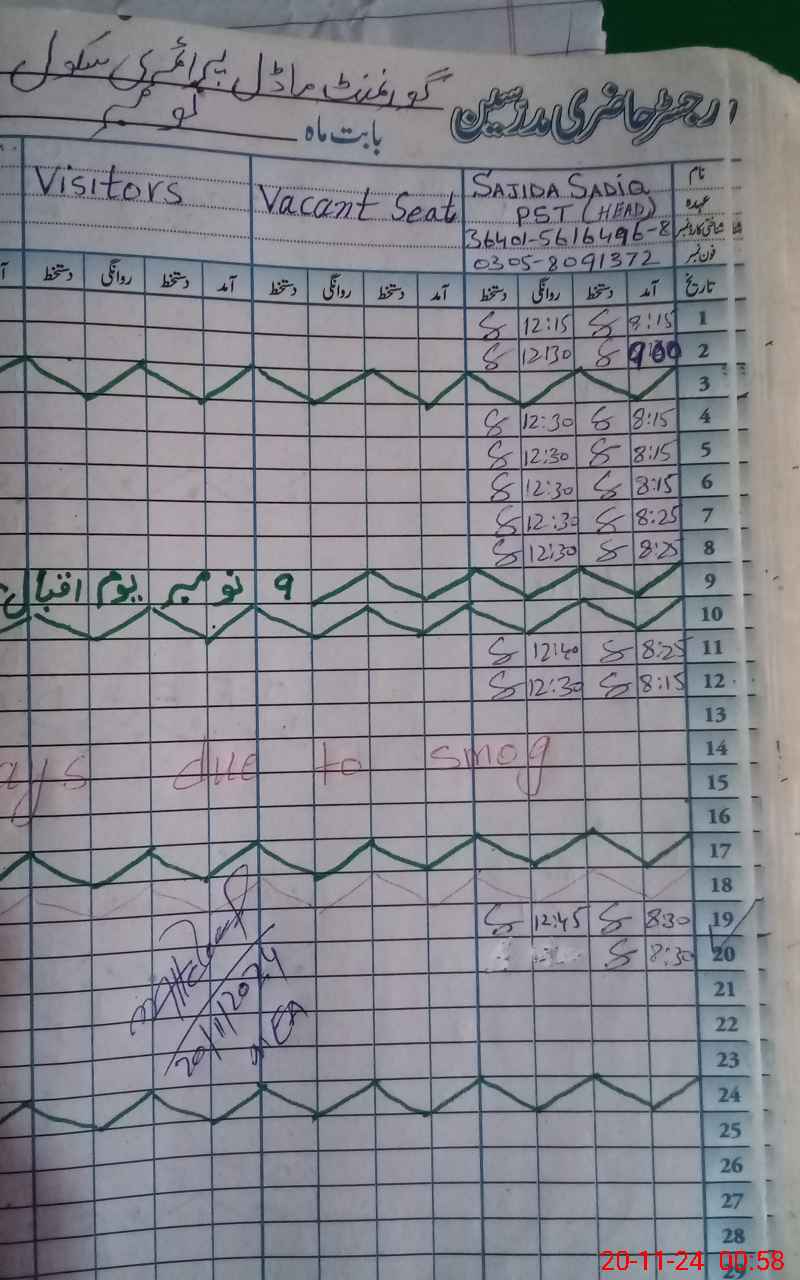 رجسٹر حاضری مدرسین گورنمنٹ ماڈل پرائمری سکول
بابت ماہ نومبر
نام SAJIDA SADIA Vacant Seat Visitors
عہدہ PST (HEAD)
شناختی کارڈ نمبر 36401-5616496-8
فون نمبر 0305-8091372
تاریخ آمد دستخط روانگی دستخط آمد دستخط روانگی دستخط آمد دستخط روانگی دستخط
1 8:15 12:15
2 9:00 12:30
3
4 8:15 12:30
5 8:15 12:30
6 8:15 12:30
7 8:25 12:30
8 8:25 12:30
9 ۹ نومبر یوم اقبال
10
11 8:25 12:40
12 8:15 12:30
13
14
ays due to smog
15
16
17
18
19 8:30 12:45
20 8:30
21
20/11/2024
22
23
24
25
26
27
28
29
20-11-24 00:58